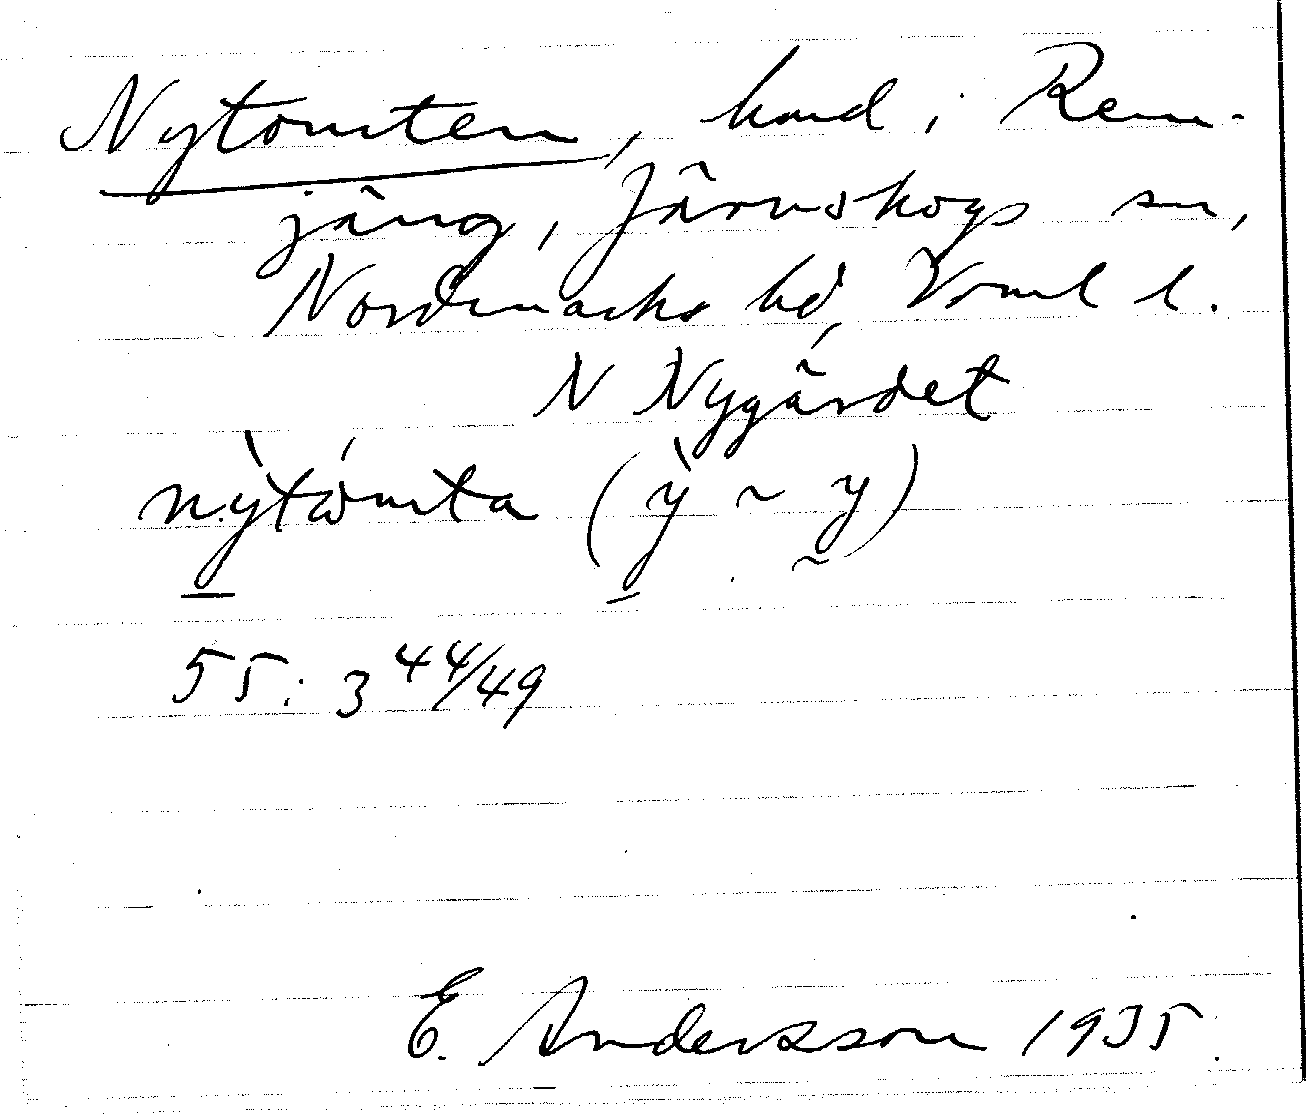 Nytomten, hmd i Rem-
jäng, Järnskogs sn,
Nordmarks hd, Vrml l.
N Nygärdet
nỳtómta (ỳ ~ y)
55:3 44/49
E. Andersson 1935.